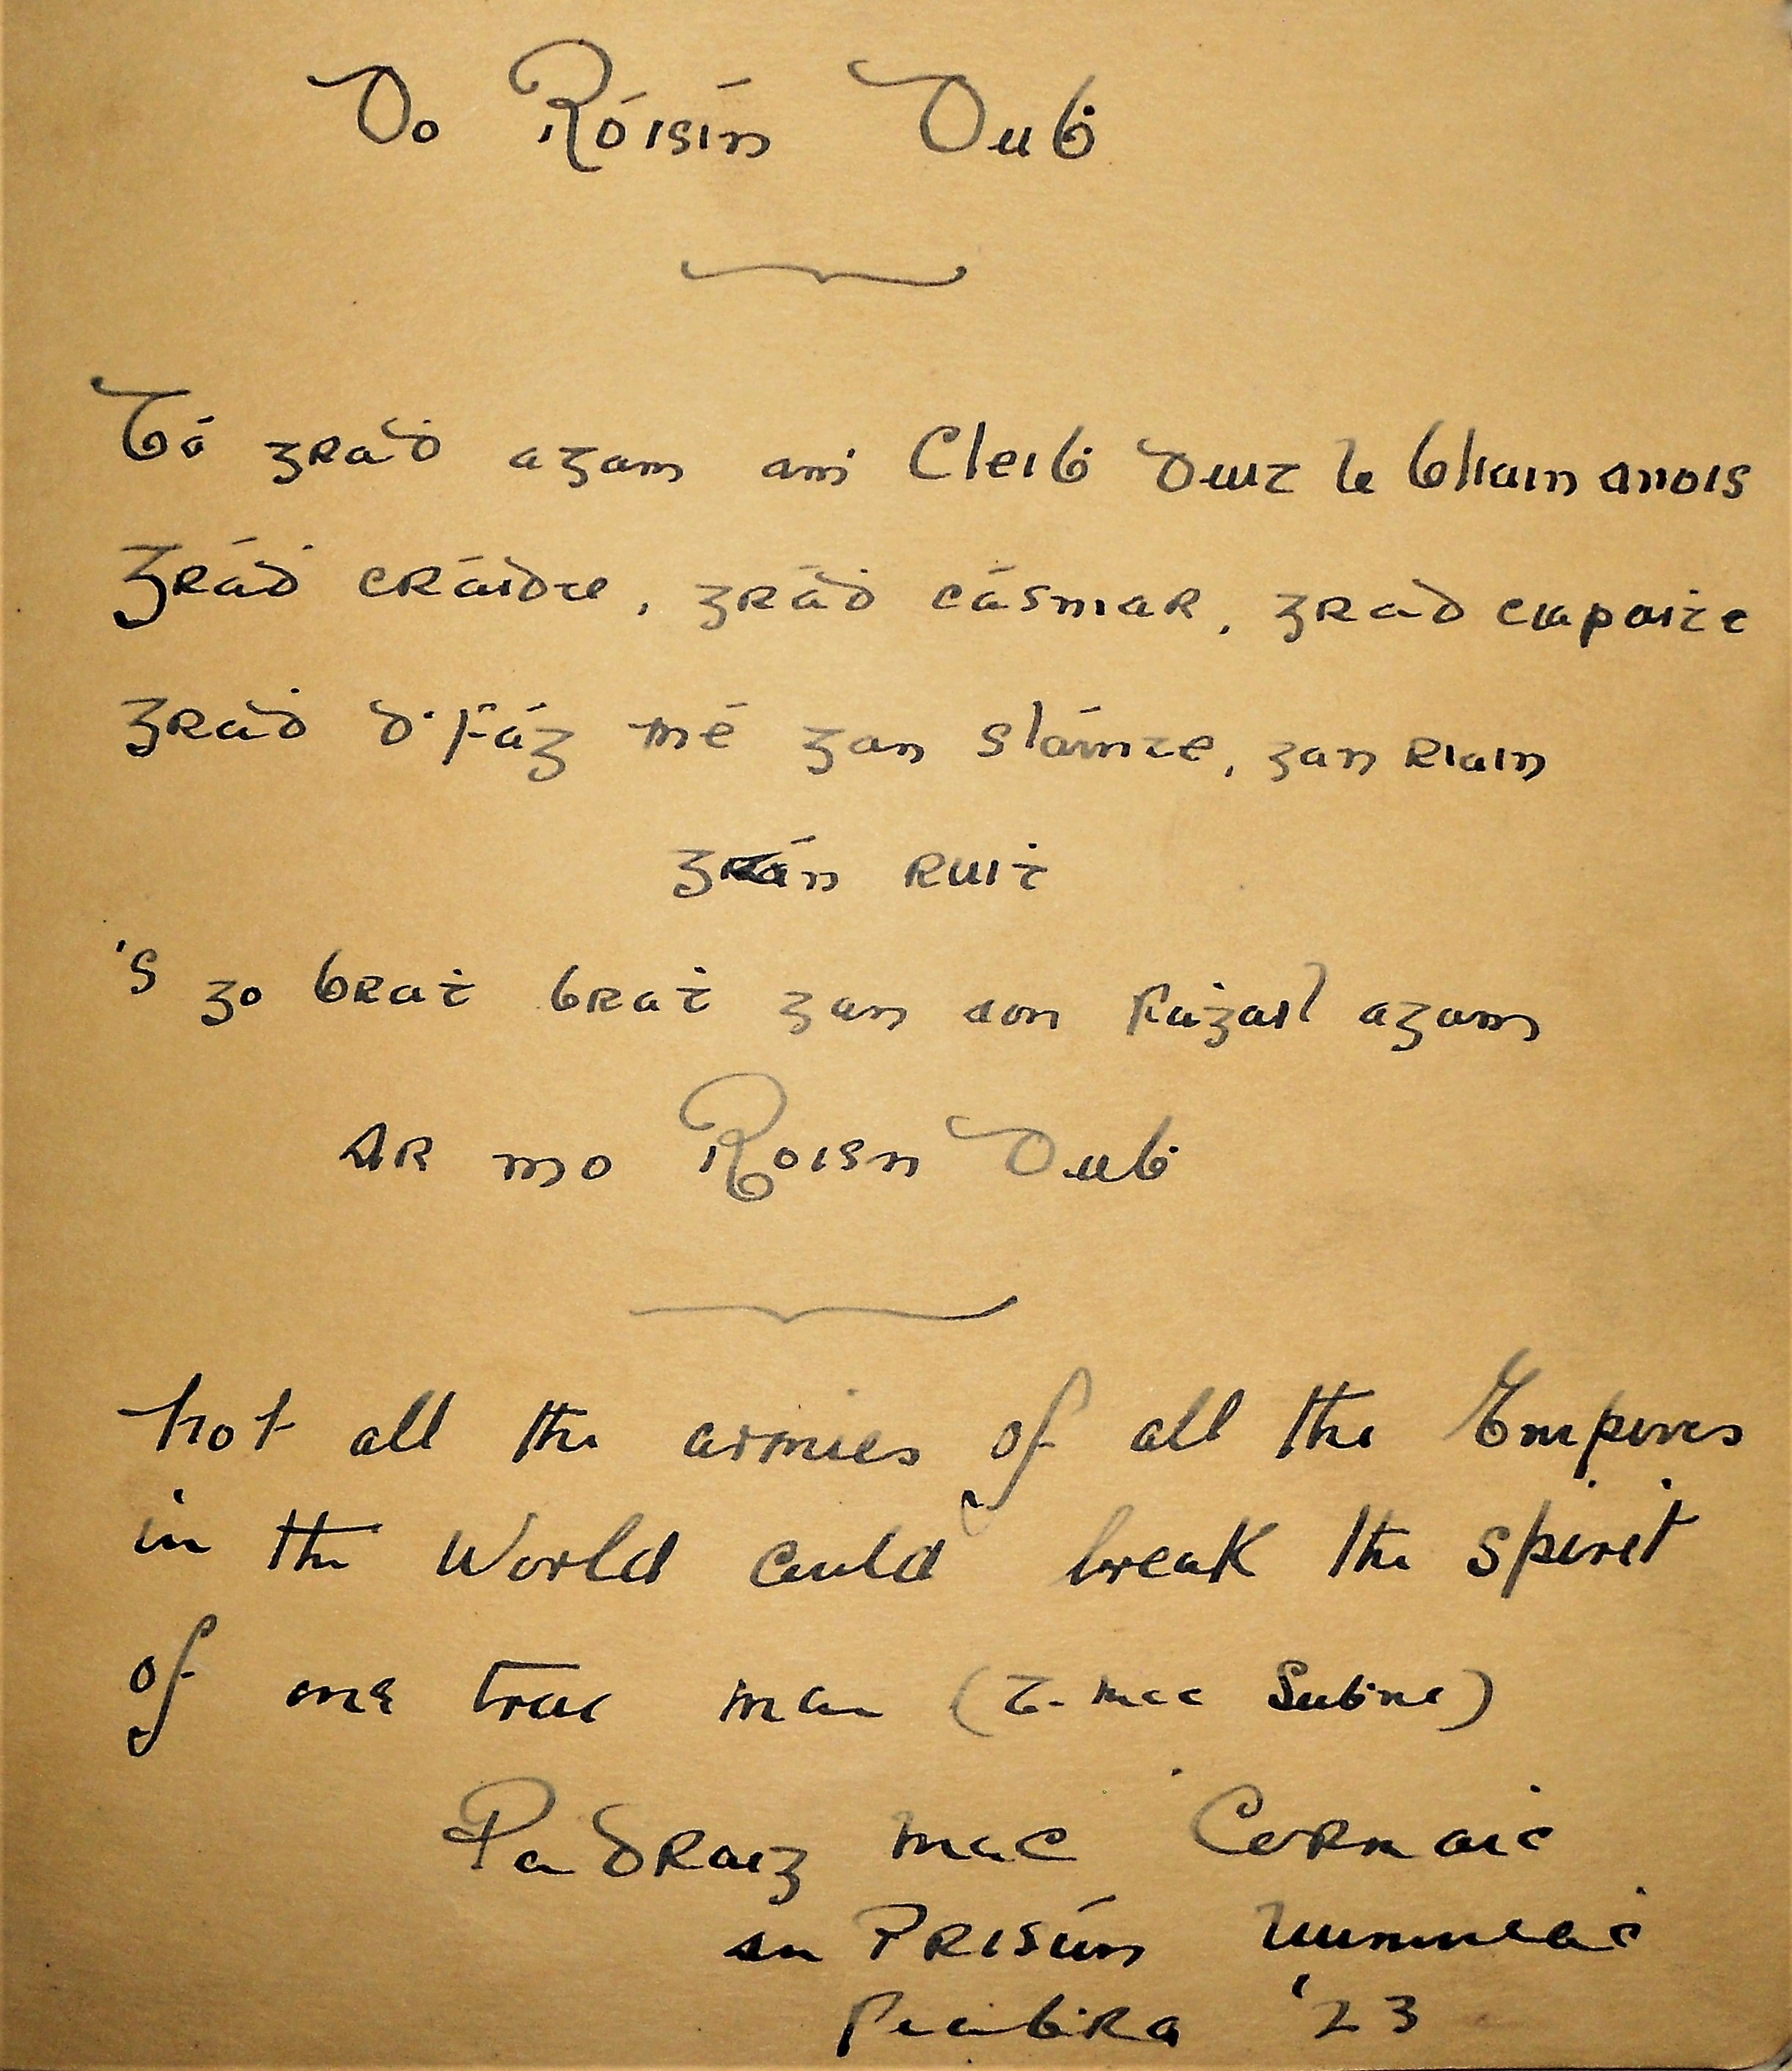 Do Róisín Duḃ
Tá graḋ agam am Cleiḃ duit le bliain anois
Gráḋ cráidte, gráḋ cásmar, graḋ ciapaite
Graḋ d'fág mé gan sláinte, gan riain
gan ruiṫ
's go braṫ braṫ gan aon fáġail agam
Ar mo Roisn Duḃ
Not all the armies of all the Empires
in the World could break the spirit
of one true man (T. Mac Suiḃne)
Padraig Mac Cormaic
an Prísún Luimneaċ
Feaḃra '23